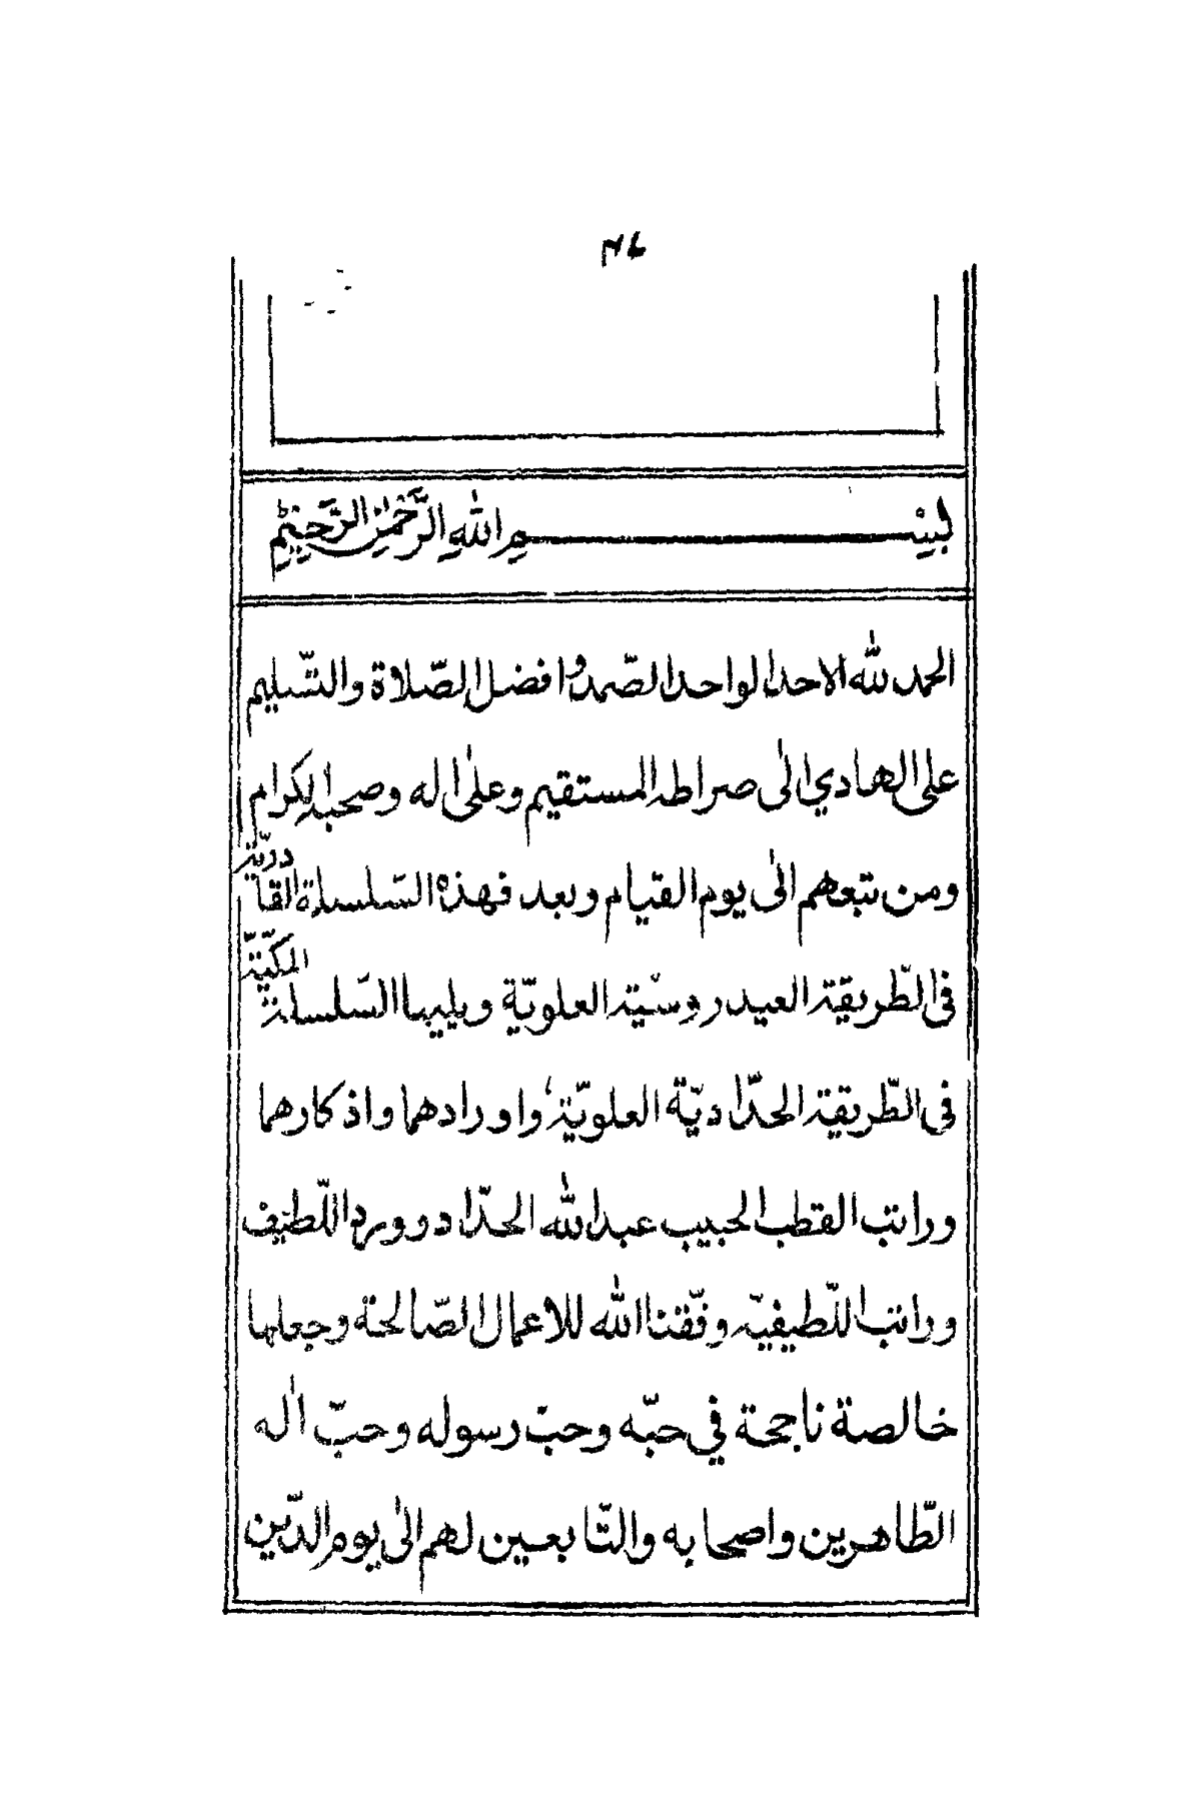 بِسْمِ اللهِ الرَّحْمٰنِ الرَّحِيْمِ
الحمد لله الاحد الواحد الصّمد وافضل الصّلاة والتّسليم
على الهادي الٰى صراطه المستقيم وعلٰى اٰله وصحبه الكرام
ومن تبعهم الٰى يوم القيام وبعد فهذه السّلسلة القادريّة
فى الطّريقة العيدروسيّة العلويّة ويليها السّلسلة المكيّة
فى الطّريقة الحدّاديّة العلويّة واورادهما واذكارهما
وراتب القطب الحبيب عبد الله الحدّاد وورد اللّطيف
وراتب اللّطيفيّة وفّقنا الله للاعمال الصّالحة وجعلها
خالصة ناجحة في حبّه وحبّ رسوله وحبّ اٰله
الطّاهرين واصحابه والتّابعين لهم الٰى يوم الدّين